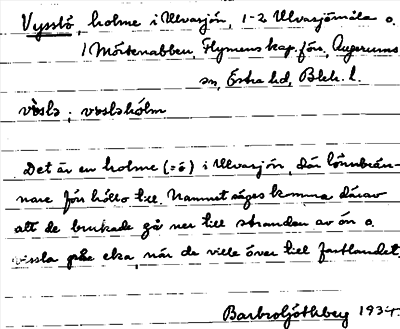 Vysslö, holme i Ulvasjön, 1-2 Ulvasjömåla o.
1 Mörtenabben, Flymens kap. förs., Augerums
sn, Östra hd, Blek. l.
vösla; vöslahólm
Det är en holme (=ö) i Ulvasjön, där lönnbrän-
nare för hólto till. Namnet säges komma därav
att de brukade gå ner till stranden av ön o.
vissla eka, när de ville över till fastlandet.
1934.